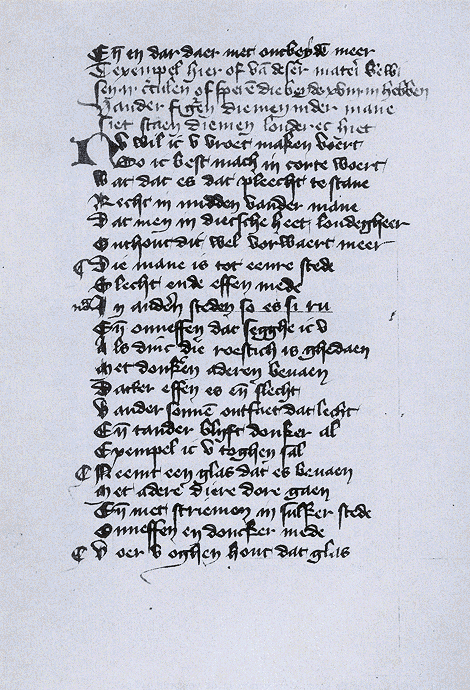 Eñ en dar daer met ontbeydē meer
Texempel hier of vā deser materi
vander fig̃en diemen inder mane
siet staen diemen louderec hiet
Nv wil ic v vroet maken voert
So ic best mach in corte woert
Wat dat es dat pleecht te stane
Recht in midden vander mane
Dat men in dietsche heet loudegheer
Onthout dit wel vorwaert meer
Die mane is tot eenre stede
Slecht ende effen mede
In andēn steden so es si ru
Eñ onneffen dat segghe ic v
Als dinc die roestich is ghedaen
Met donkēn aderen bevaen
Datter effen es eñ slecht
Vander sonnē ontfaet dat lecht
Eñ tander blyft donker al
Exempel ic v toghen sal
Neemt een glas dat es bevaen
Met aderē diere dore gaen
Eñ met striemen in sulker stede
Onneffen en doncker mede
Voer v oghen hout dat glas